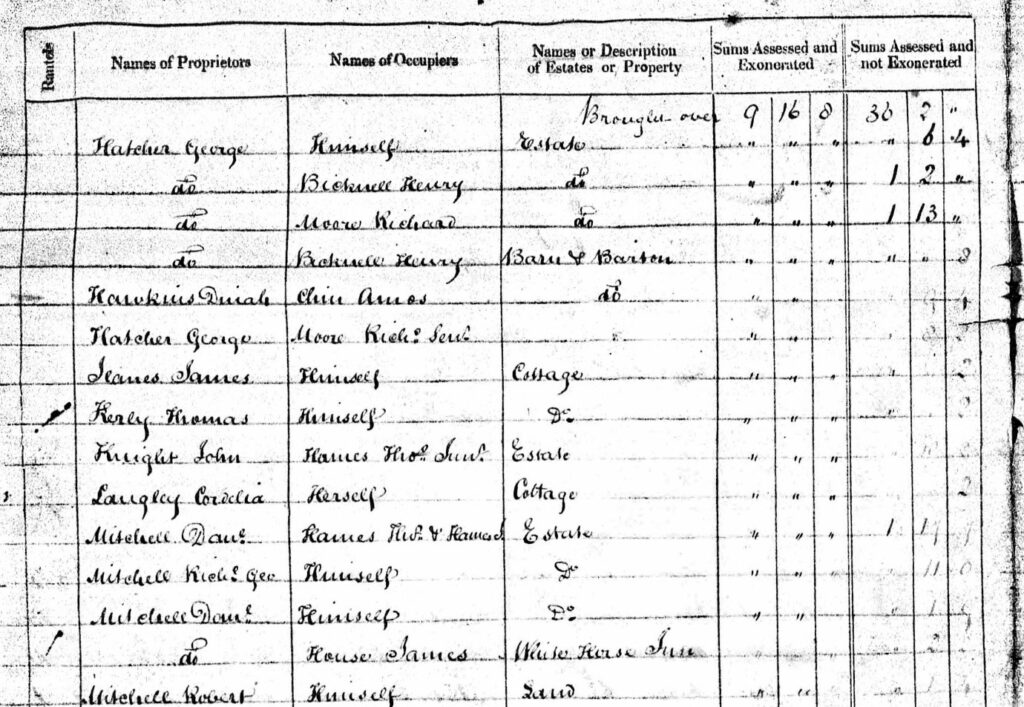 Rentals Names of Proprietors Names of Occupiers Names or Description of Estates or Property Sums Assessed and Exonerated Sums Assessed and not Exonerated
Brought over 9 16 8 36 2 "
Hatcher George Himself Estate " " " " 6 4
do Bicknell Henry do " " " 1 2 "
do Moore Richard do " " " 1 13 "
do Bicknell Henry Barn & Barton " " " " " 8
Hawkins Dinah Chin Amos do " " "
Hatcher George Moore Richd. Senr. " " "
Jeanes James Himself Cottage " " " 2
Kerly Thomas Himself Do. " " "
Knight John Hames Thos. Junr. Estate " " "
Langley Cordelia Herself Cottage " " " 2
Mitchell Danl. Hames Thos. & Hames Estate " " " 1
Mitchell Richd. Geo Himself Do " " "
Mitchell Danl. Himself Do. " " "
do House James White Horse Inn " " " 2
Mitchell Robert Himself Land " "